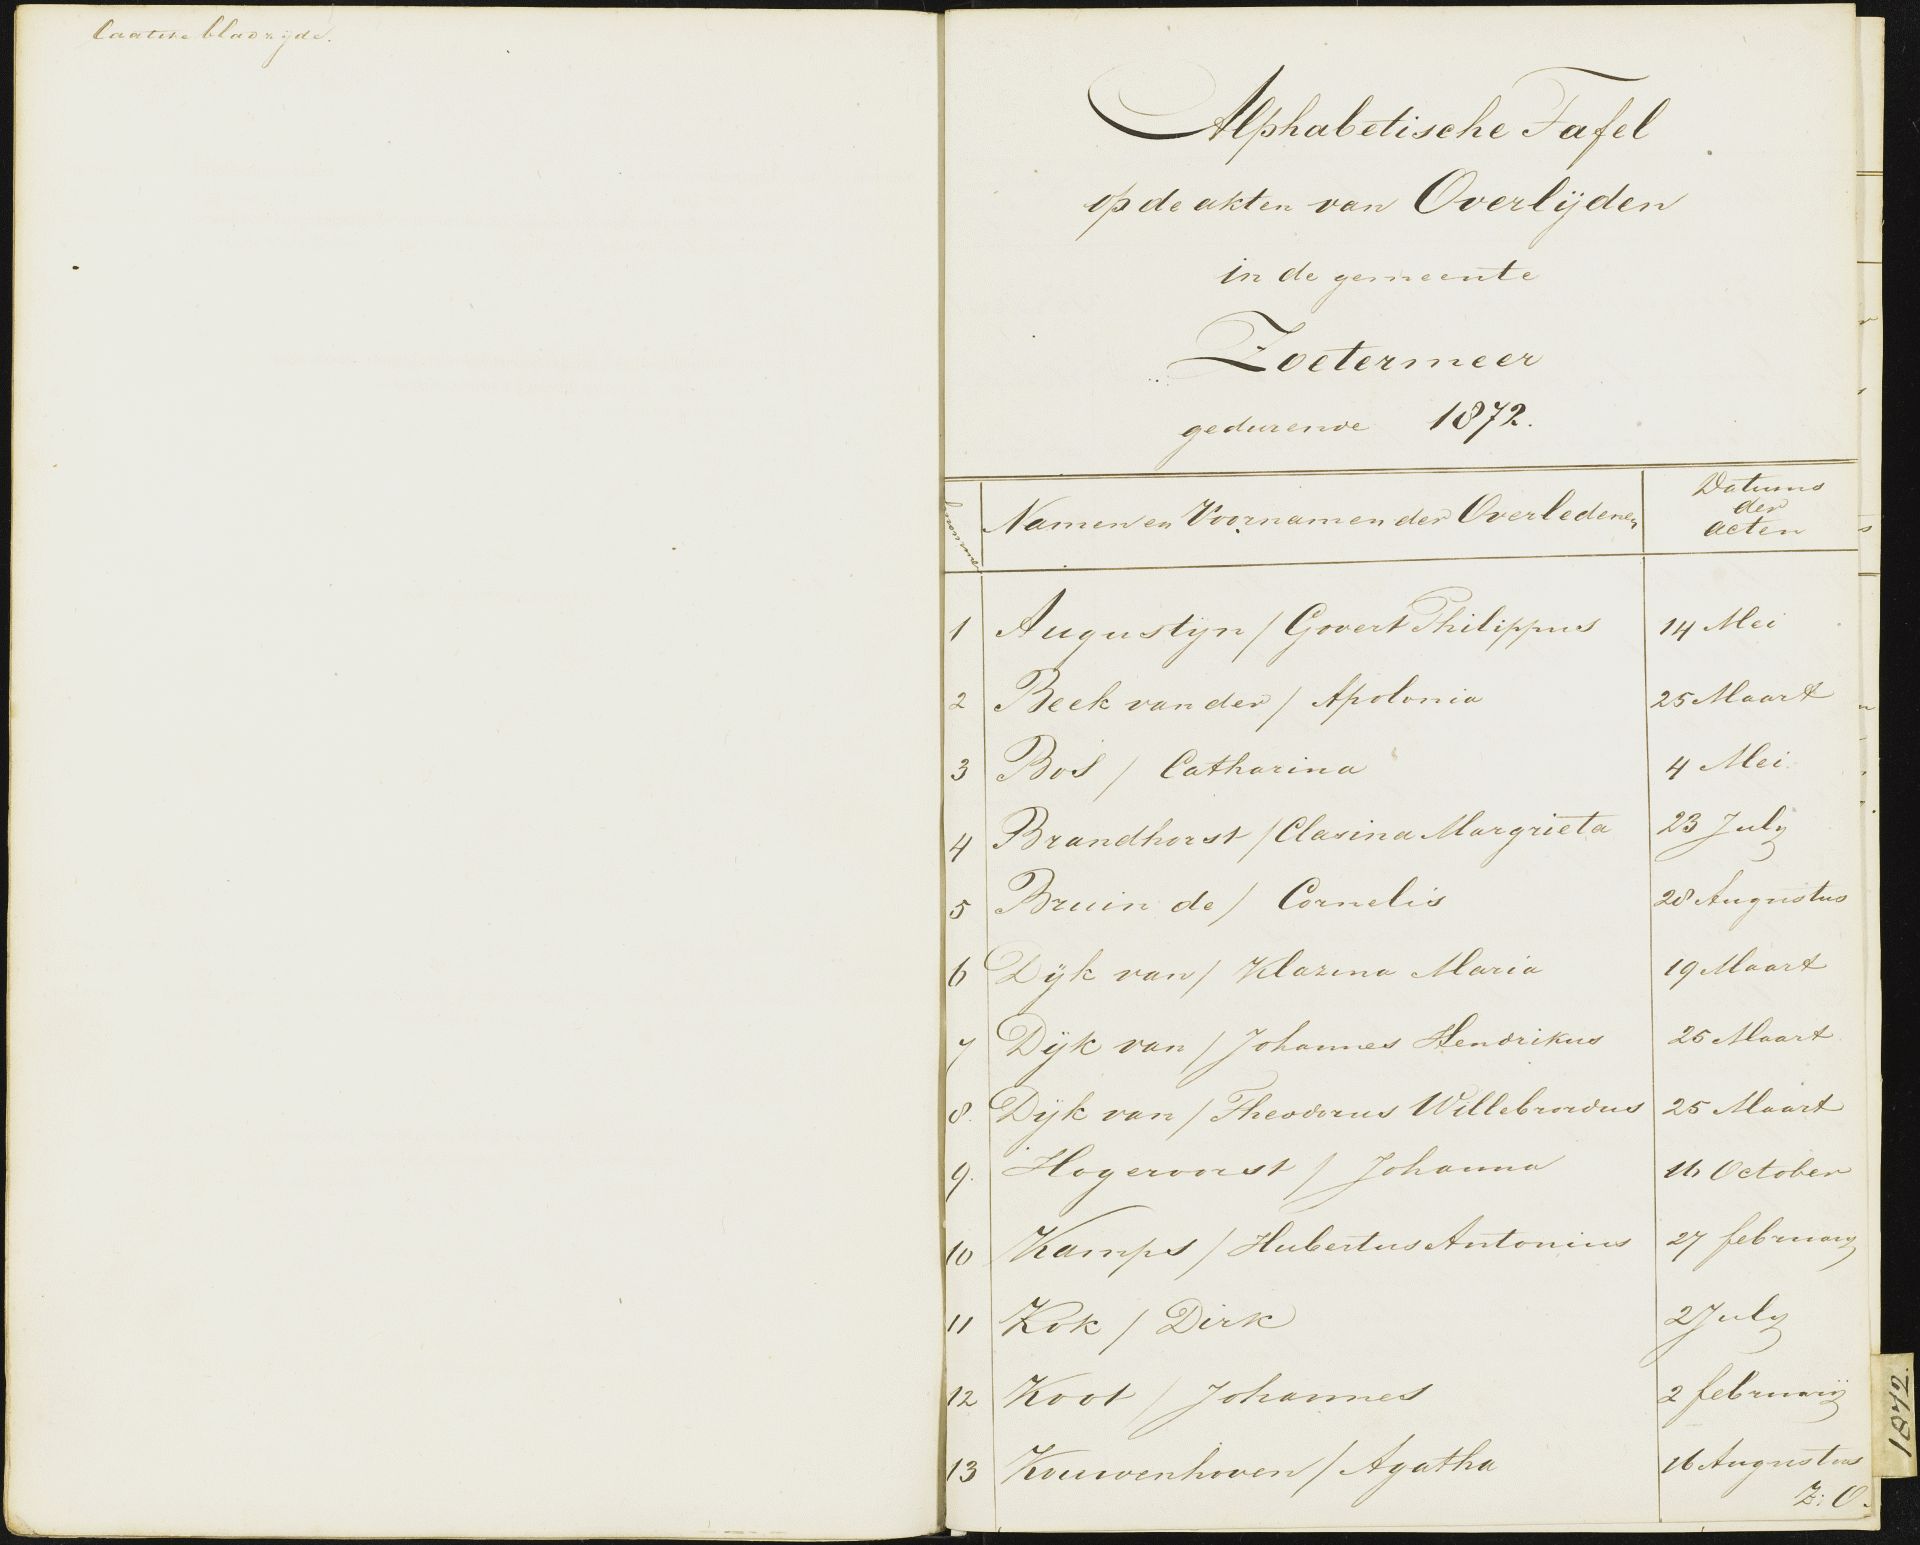 Laatste bladzijde.
Alphabetische Tafel
op de akten van Overlijden
in de gemeente
Zoetermeer
gedurende 1872.
Nummers Namen en Voornamen der Overledenen Datums der acten
1 Augustijn / Govert Philippus 14 Mei
2 Beek van der / Apolonia 25 Maart
3 Bos / Catharina 4 Mei
4 Brandhorst / Clasina Margrieta 23 July
5 Bruin de / Cornelis 28 Augustus
6 Dijk van / Klazina Maria 19 Maart
7 Dijk van / Johannes Hendrikus 25 Maart
8. Dijk van / Theodorus Willebrordus 25 Maart
9. Hogervorst / Johanna 16 October
10 Kamps / Hubertus Antonius 27 february
11 Kok / Dirk 2 July
12 Koot / Johannes 2 februarij
13 Kouwenhoven / Agatha 16 Augustus
Z: O.
1872.